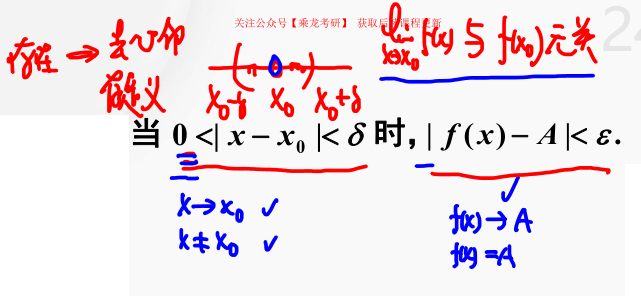 关注公众号【乘龙考研】 获取后续课程更新
24
存在性 → 去心邻
有定义
x₀-δ x₀ x₀+δ
lim f(x) 与 f(x₀) 无关
x→x₀
当 0<| x − x₀ |< δ 时, | f (x) − A |< ε.
x→x₀ ✓
x≠x₀ ✓
✓
f(x)→A
f(x)=A